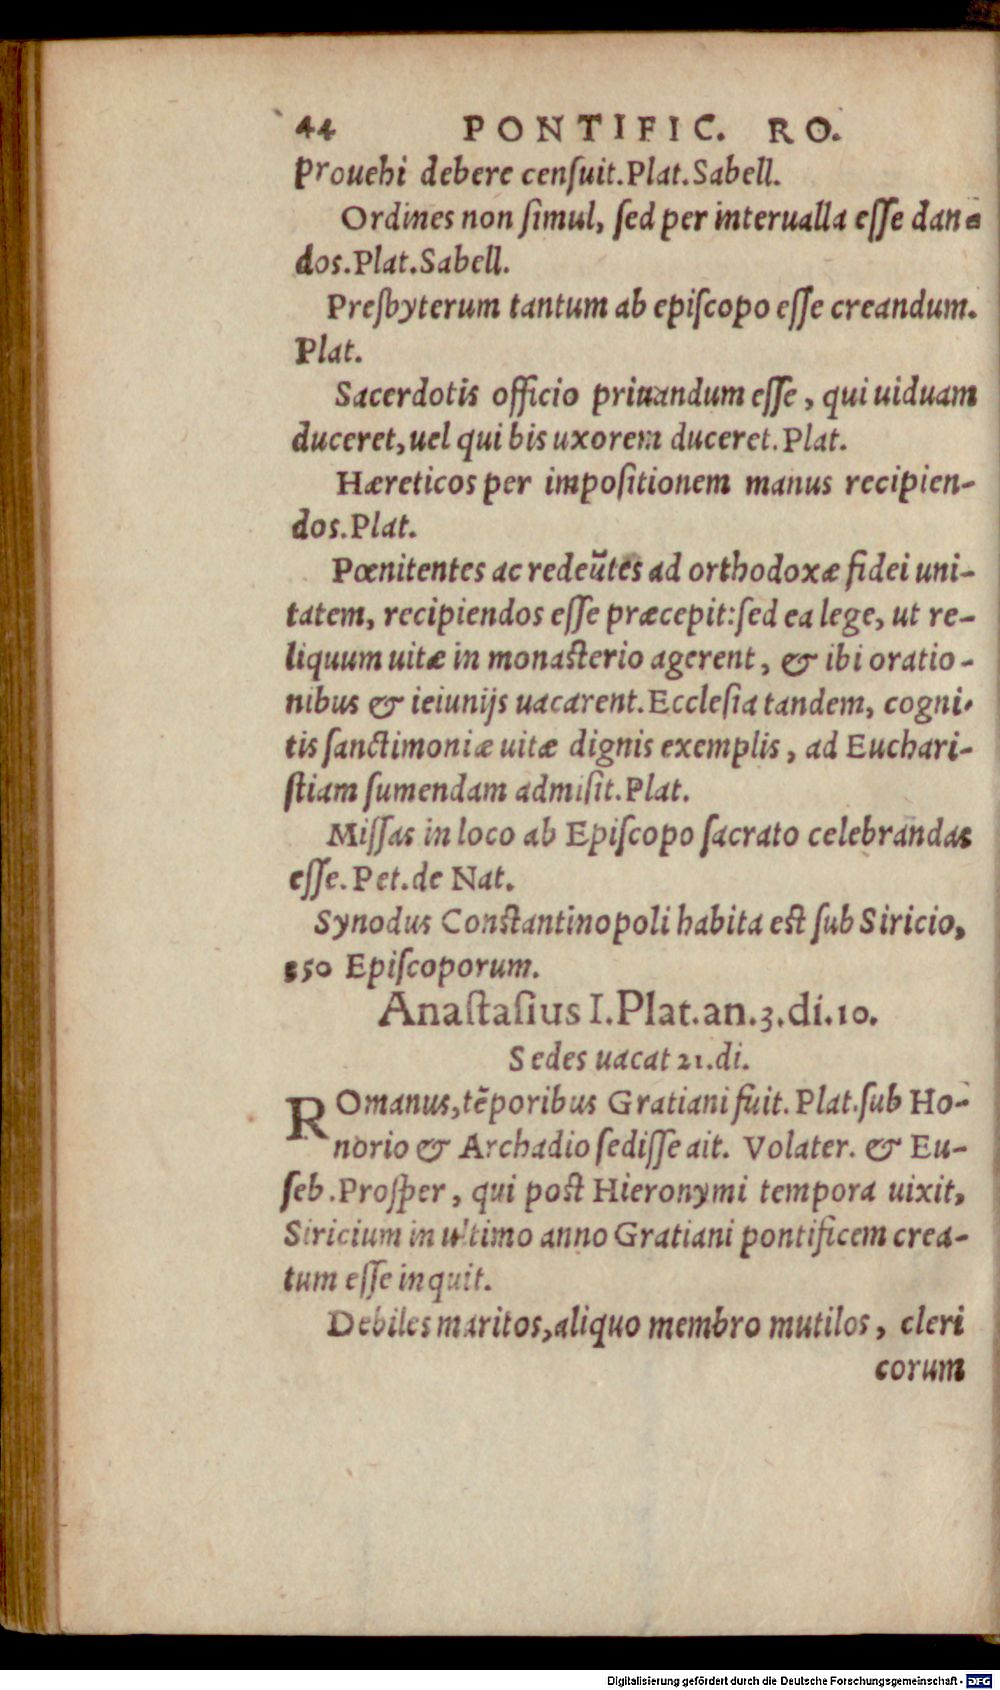 44 PONTIFIC. RO.
prouehi debere cenſuit. Plat. Sabell.
Ordines non ſimul, ſed per interualla eſſe dan-
dos. Plat. Sabell.
Preſbyterum tantum ab epiſcopo eſſe creandum.
Plat.
Sacerdotis officio priuandum eſſe, qui uiduam
duceret, uel qui bis uxorem duceret. Plat.
Hæreticos per impoſitionem manus recipien-
dos. Plat.
Pœnitentes ac redeũtes ad orthodoxæ fidei uni-
tatem, recipiendos eſſe præcepit: ſed ea lege, ut re-
liquum uitæ in monaſterio agerent, & ibi oratio-
nibus & ieiunijs uacarent. Eccleſia tandem, cogni-
tis ſanctimoniæ uitæ dignis exemplis, ad Euchari-
ſtiam ſumendam admiſit. Plat.
Miſſas in loco ab Epiſcopo ſacrato celebrandas
eſſe. Pet. de Nat.
Synodus Conſtantinopoli habita eſt ſub Siricio,
350 Epiſcoporum.
Anaſtaſius I. Plat. an. 3. di. 10.
Sedes uacat 21. di.
ROmanus, tẽporibus Gratiani fuit. Plat. ſub Ho-
norio & Archadio ſediſſe ait. Volater. & Eu-
ſeb. Proſper, qui poſt Hieronymi tempora uixit,
Siricium in ultimo anno Gratiani pontificem crea-
tum eſſe inquit.
Debiles maritos, aliquo membro mutilos, cleri
corum
Digitalisierung gefördert durch die Deutsche Forschungsgemeinschaft - DFG